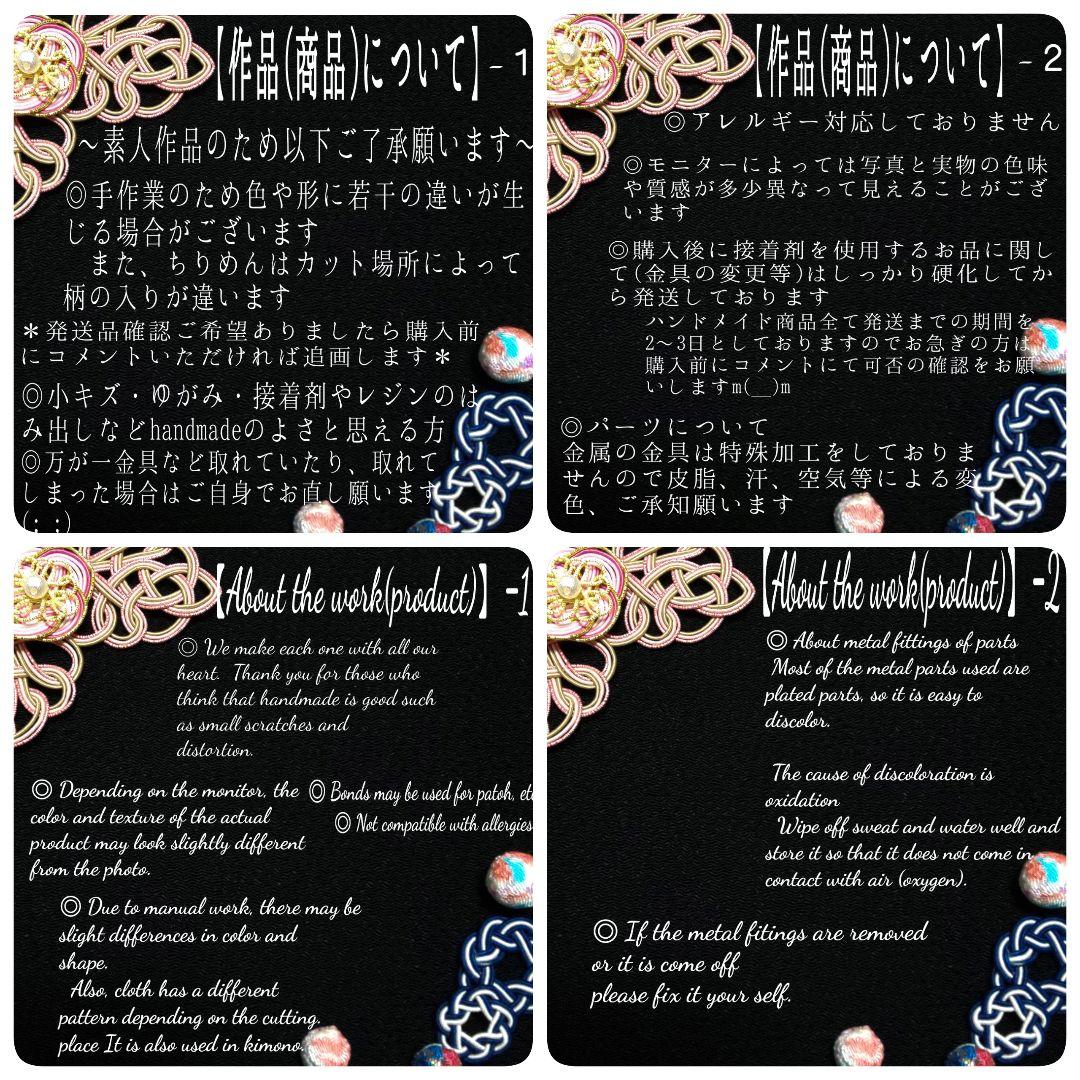 【作品(商品)について】-1
～素人作品のため以下ご了承願います～
◎手作業のため色や形に若干の違いが生
じる場合がございます
また、ちりめんはカット場所によって
柄の入りが違います
＊発送品確認ご希望ありましたら購入前
にコメントいただければ追画します＊
◎小キズ・ゆがみ・接着剤やレジンのは
み出しなどhandmadeのよさと思える方
◎万が一金具など取れていたり、取れて
しまった場合はご自身でお直し願います
(; ;)
【作品(商品)について】-2
◎アレルギー対応しておりません
◎モニターによっては写真と実物の色味
や質感が多少異なって見えることがござ
います
◎購入後に接着剤を使用するお品に関し
て(金具の変更等)はしっかり硬化してか
ら発送しております
ハンドメイド商品全て発送までの期間を
2～3日としておりますのでお急ぎの方は
購入前にコメントにて可否の確認をお願
いしますm(__)m
◎パーツについて
金属の金具は特殊加工をしておりま
せんので皮脂、汗、空気等による変
色、ご承知願います
【About the work(product)】-1
◎ We make each one with all our
heart. Thank you for those who
think that handmade is good such
as small scratches and
distortion.
◎ Depending on the monitor, the
color and texture of the actual
product may look slightly different
from the photo.
◎ Bonds may be used for patch, etc
◎ Not compatible with allergies
◎ Due to manual work, there may be
slight differences in color and
shape.
Also, cloth has a different
pattern depending on the cutting.
place It is also used in kimono.
【About the work(product)】-2
◎ About metal fittings of parts
Most of the metal parts used are
plated parts, so it is easy to
discolor.
The cause of discoloration is
oxidation
Wipe off sweat and water well and
store it so that it does not come in
contact with air (oxygen).
◎ If the metal fitings are removed
or it is come off
please fix it your self.